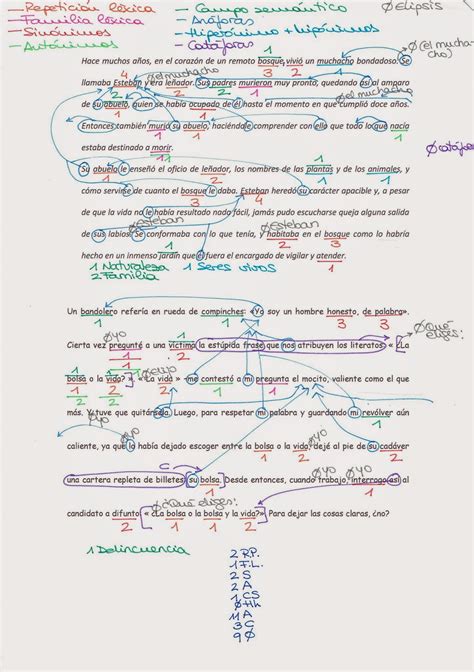 — Repetición léxica — Campo semántico Ø Elipsis
— Familia léxica — Anáforas
— Sinónimos — Hiperónimo + hipónimos
— Antónimos — Catáforas
Ø (el mucha-
cho)
Hace muchos años, en el corazón de un remoto bosque, vivió un muchacho bondadoso. Se
llamaba Esteban y era leñador. Sus padres murieron muy pronto, quedando así al amparo
de su abuelo, quien se había ocupado de él hasta el momento en que cumplió doce años.
Entonces también murió su abuelo, haciéndole comprender con ello que todo lo que nacía
estaba destinado a morir.
Su abuelo le enseñó el oficio de leñador, los nombres de las plantas y de los animales, y
cómo servirse de cuanto el bosque le daba. Esteban heredó su carácter apacible y, a pesar
de que la vida no le había resultado nada fácil, jamás pudo escucharse queja alguna salida
de sus labios. Se conformaba con lo que tenía, y habitaba en el bosque como lo habría
hecho en un inmenso jardín que él fuera el encargado de vigilar y atender.
1 Naturaleza 1 Seres vivos
2 Familia
Un bandolero refería en rueda de compinches: «Yo soy un hombre honesto, de palabra».
Cierta vez pregunté a una víctima la estúpida frase que nos atribuyen los literatos: « ¿La
bolsa o la vida? ». «La vida» -me contestó a mi pregunta el mocito, valiente como el que
más. Y tuve que quitársela. Luego, para respetar mi palabra y guardando mi revólver aún
caliente, ya que lo había dejado escoger entre la bolsa o la vida, dejé al pie de su cadáver
una cartera repleta de billetes: su bolsa. Desde entonces, cuando trabajo, interrogo así al
candidato a difunto: « ¿La bolsa o la bolsa y la vida?» Para dejar las cosas claras, ¿no?
1 Delincuencia
2 R.P.
1 F.L.
2 S
2 A
1 CS
Ø Hh
11 A
3 C
9 Ø